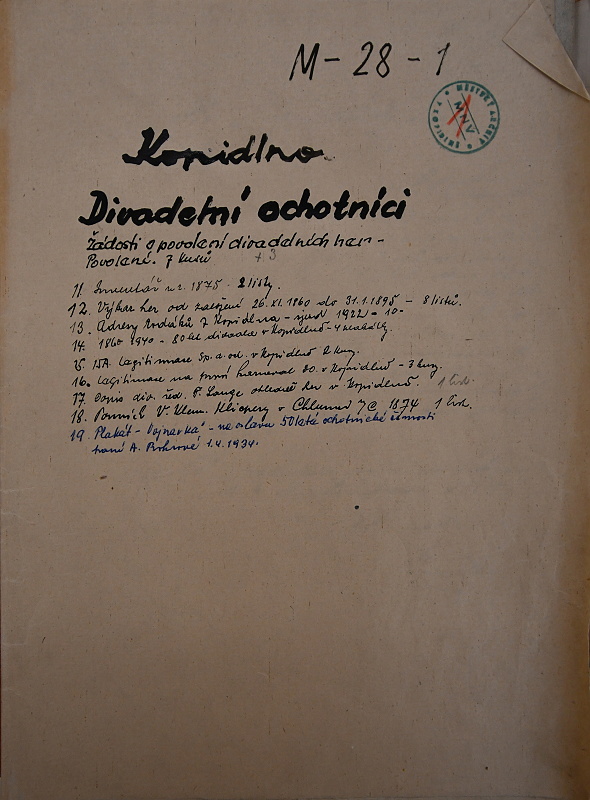 M-28-1
MĚSTSKÝ ARCHIV
MNV
Kopidlno
Divadelní ochotníci
Žádosti o povolení divadelních her -
Povolené. 7 kusů + 3
11. Inventář z r. 1875 - 2 listy.
12. Výkaz her od založení 26.XI.1860 do 31.1.1895 - 8 listů.
13. Adresy rodáků z Kopidlna - sjezd 1922 - 10 -
14. 1860-1940 - 80 let divadla v Kopidlně -
15. Legitimace Sp. d. och. v Kopidlně 2 kusy.
16. Legitimace na v Kopidlně - 3 kusy.
17. Dopis div. řed. F. Lange ohledně her v Kopidlně. 1 list.
18. Pomník V. Klem. Klicpery v Chlumci n/C 1874 1 list.
19. Plakát - Vojnarka - na oslavu 50leté ochotnické činnosti
paní A. Rohrové 1.4.1934.